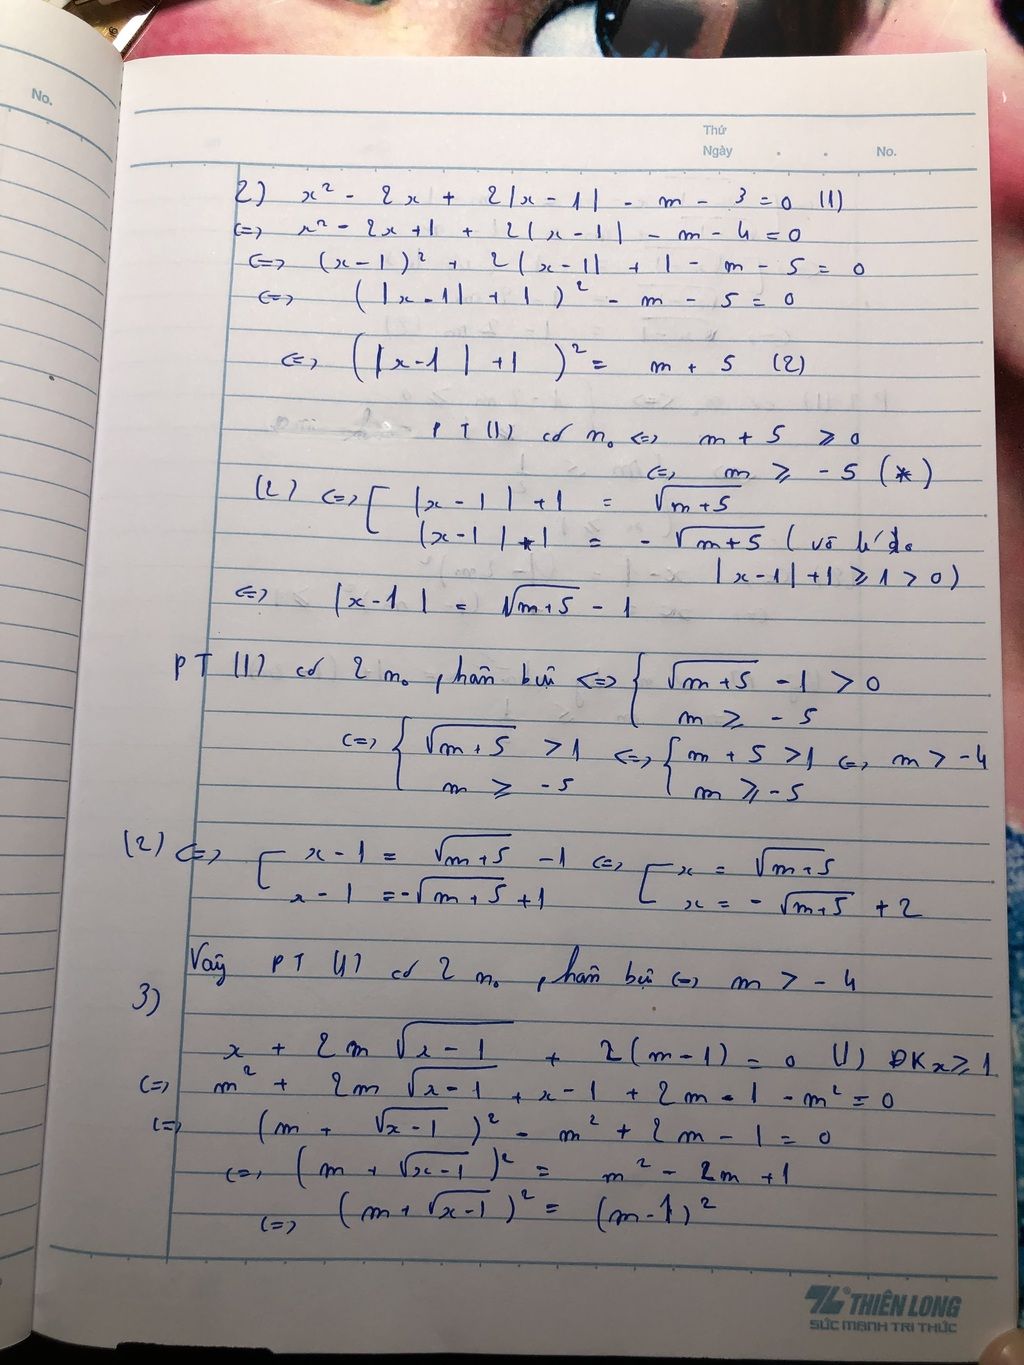 No.
Thứ
Ngày . . No.
2) x² - 2x + 2|x - 1| - m - 3 = 0 (1)
<=> x² - 2x + 1 + 2|x - 1| - m - 4 = 0
<=> (x - 1)² + 2|x - 1| + 1 - m - 5 = 0
<=> (|x - 1| + 1)² - m - 5 = 0
<=> (|x - 1| + 1)² = m + 5 (2)
PT (1) có n₀ <=> m + 5 ⩾ 0
<=> m ⩾ - 5 (*)
(2) <=> [ |x - 1| + 1 = √(m+5)
|x - 1| + 1 = - √(m+5) (vô lí do
|x - 1| + 1 ⩾ 1 > 0)
<=> |x - 1| = √(m+5) - 1
PT (1) có 2 n₀ phân biệt <=> { √(m+5) - 1 > 0
m ⩾ - 5
<=> { √(m+5) > 1 <=> { m + 5 > 1 <=> m > - 4
m ⩾ - 5 m ⩾ - 5
(2) <=> [ x - 1 = √(m+5) - 1 <=> [ x = √(m+5)
x - 1 = -√(m+5) + 1 x = - √(m+5) + 2
Vậy PT (1) có 2 n₀ phân biệt <=> m > - 4
3)
x + 2m √(x - 1) + 2(m - 1) = 0 (1) ĐK x ⩾ 1
<=> m² + 2m √(x - 1) + x - 1 + 2m - 1 - m² = 0
<=> (m + √(x - 1))² - m² + 2m - 1 = 0
<=> (m + √(x - 1))² = m² - 2m + 1
<=> (m + √(x - 1))² = (m - 1)²
THIÊN LONG
SỨC MẠNH TRI THỨC